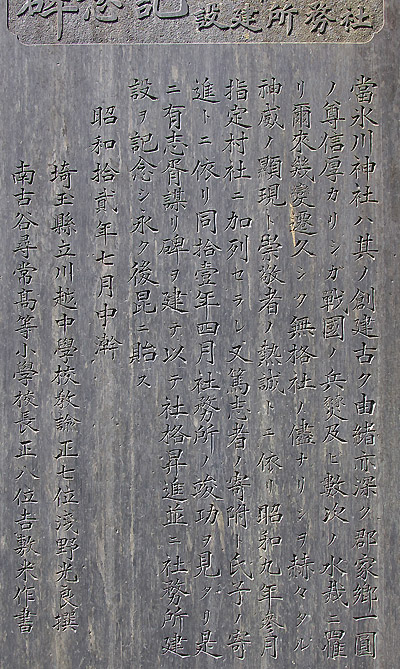 社務所建設記念碑
當氷川神社ハ其ノ創建古ク由緒亦深ク郡家郷一圓
ノ尊信厚カリシガ戰國ノ兵燹及ヒ數次ノ水烖ニ罹
リ爾來幾變遷久シク無格社ノ儘ナリシヲ赫々タル
神威ノ顯現ト崇敬者ノ熱誠トニ依リ昭和九年參月
指定村社ニ加列セラレ又篤志者ノ寄附ト氏子ノ寄
進トニ依リ同拾壹年四月社務所ノ竣功ヲ見タリ是
ニ有志胥謀リ碑ヲ建テ以テ社格昇進並ニ社務所建
設ヲ記念シ永ク後昆ニ貽ス
昭和拾貳年七月中澣
埼玉縣立川越中學校敎諭正七位淺野光良撰
南古谷尋常髙等小學校長正八位吉敷米作書